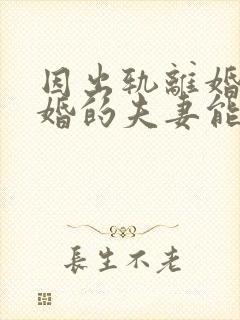 因出轨離婚
婚的夫妻能
長生不老